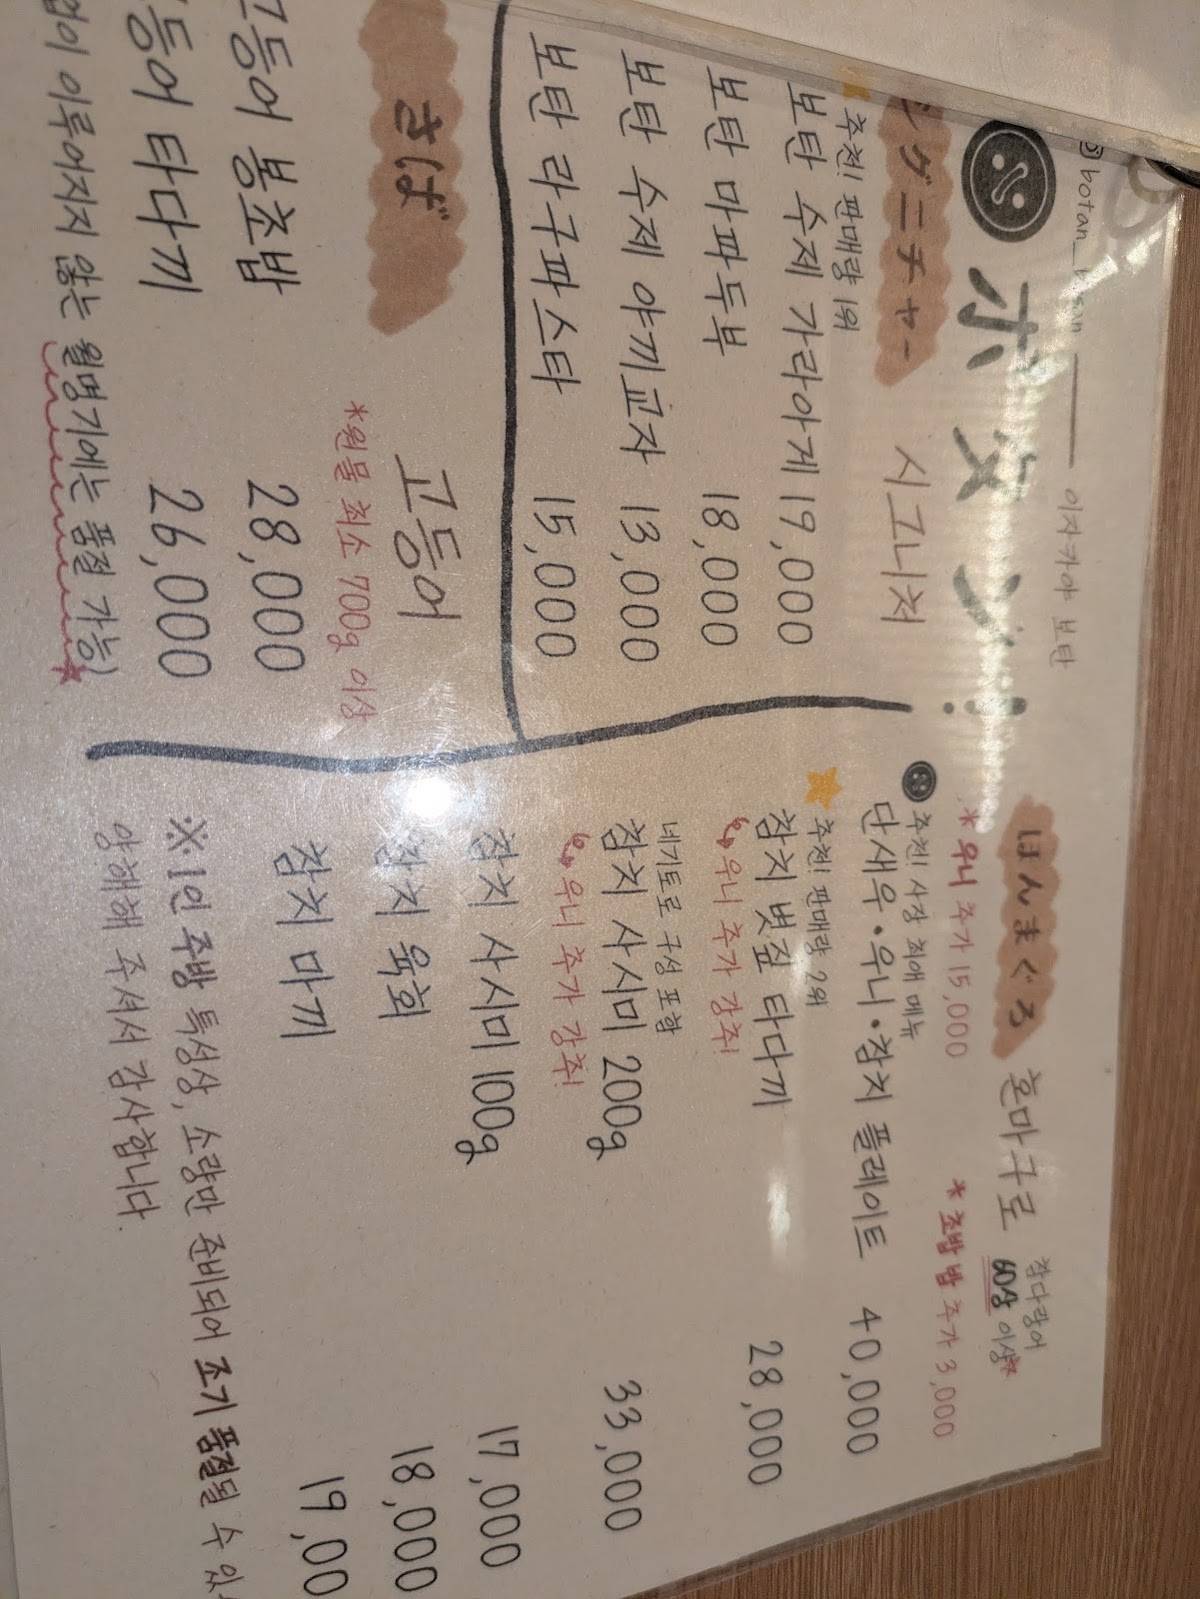 이자카야 보탄
ボタン!!
シグニチャー 시그니처
추천! 판매량 1위
보탄 수제 가라아게 19,000
보탄 마파두부 18,000
보탄 수제 야끼교자 13,000
보탄 라구파스타 15,000
さば 고등어
*원물 최소 700g 이상
고등어 봉초밥 28,000
고등어 타다끼 26,000
이루어지지 않는 월명기에는 품절 가능
ほんまぐろ 혼마구로 참다랑어
60상 이상*
*우니 추가 15,000 *초밥 밥 추가 3,000
추천! 사장 최애 메뉴
단새우·우니·참치 플레이트 40,000
추천! 판매량 2위
참치 볏짚 타다끼 28,000
우니 추가 강추!
네기토로 구성 포함
참치 사시미 200g 33,000
우니 추가 강추!
참치 사시미 100g 17,000
참치 육회 18,000
참치 마끼 19,00
※1인 주방 특성상, 소량만 준비되어 조기 품절될 수 있
양해해 주셔서 감사합니다